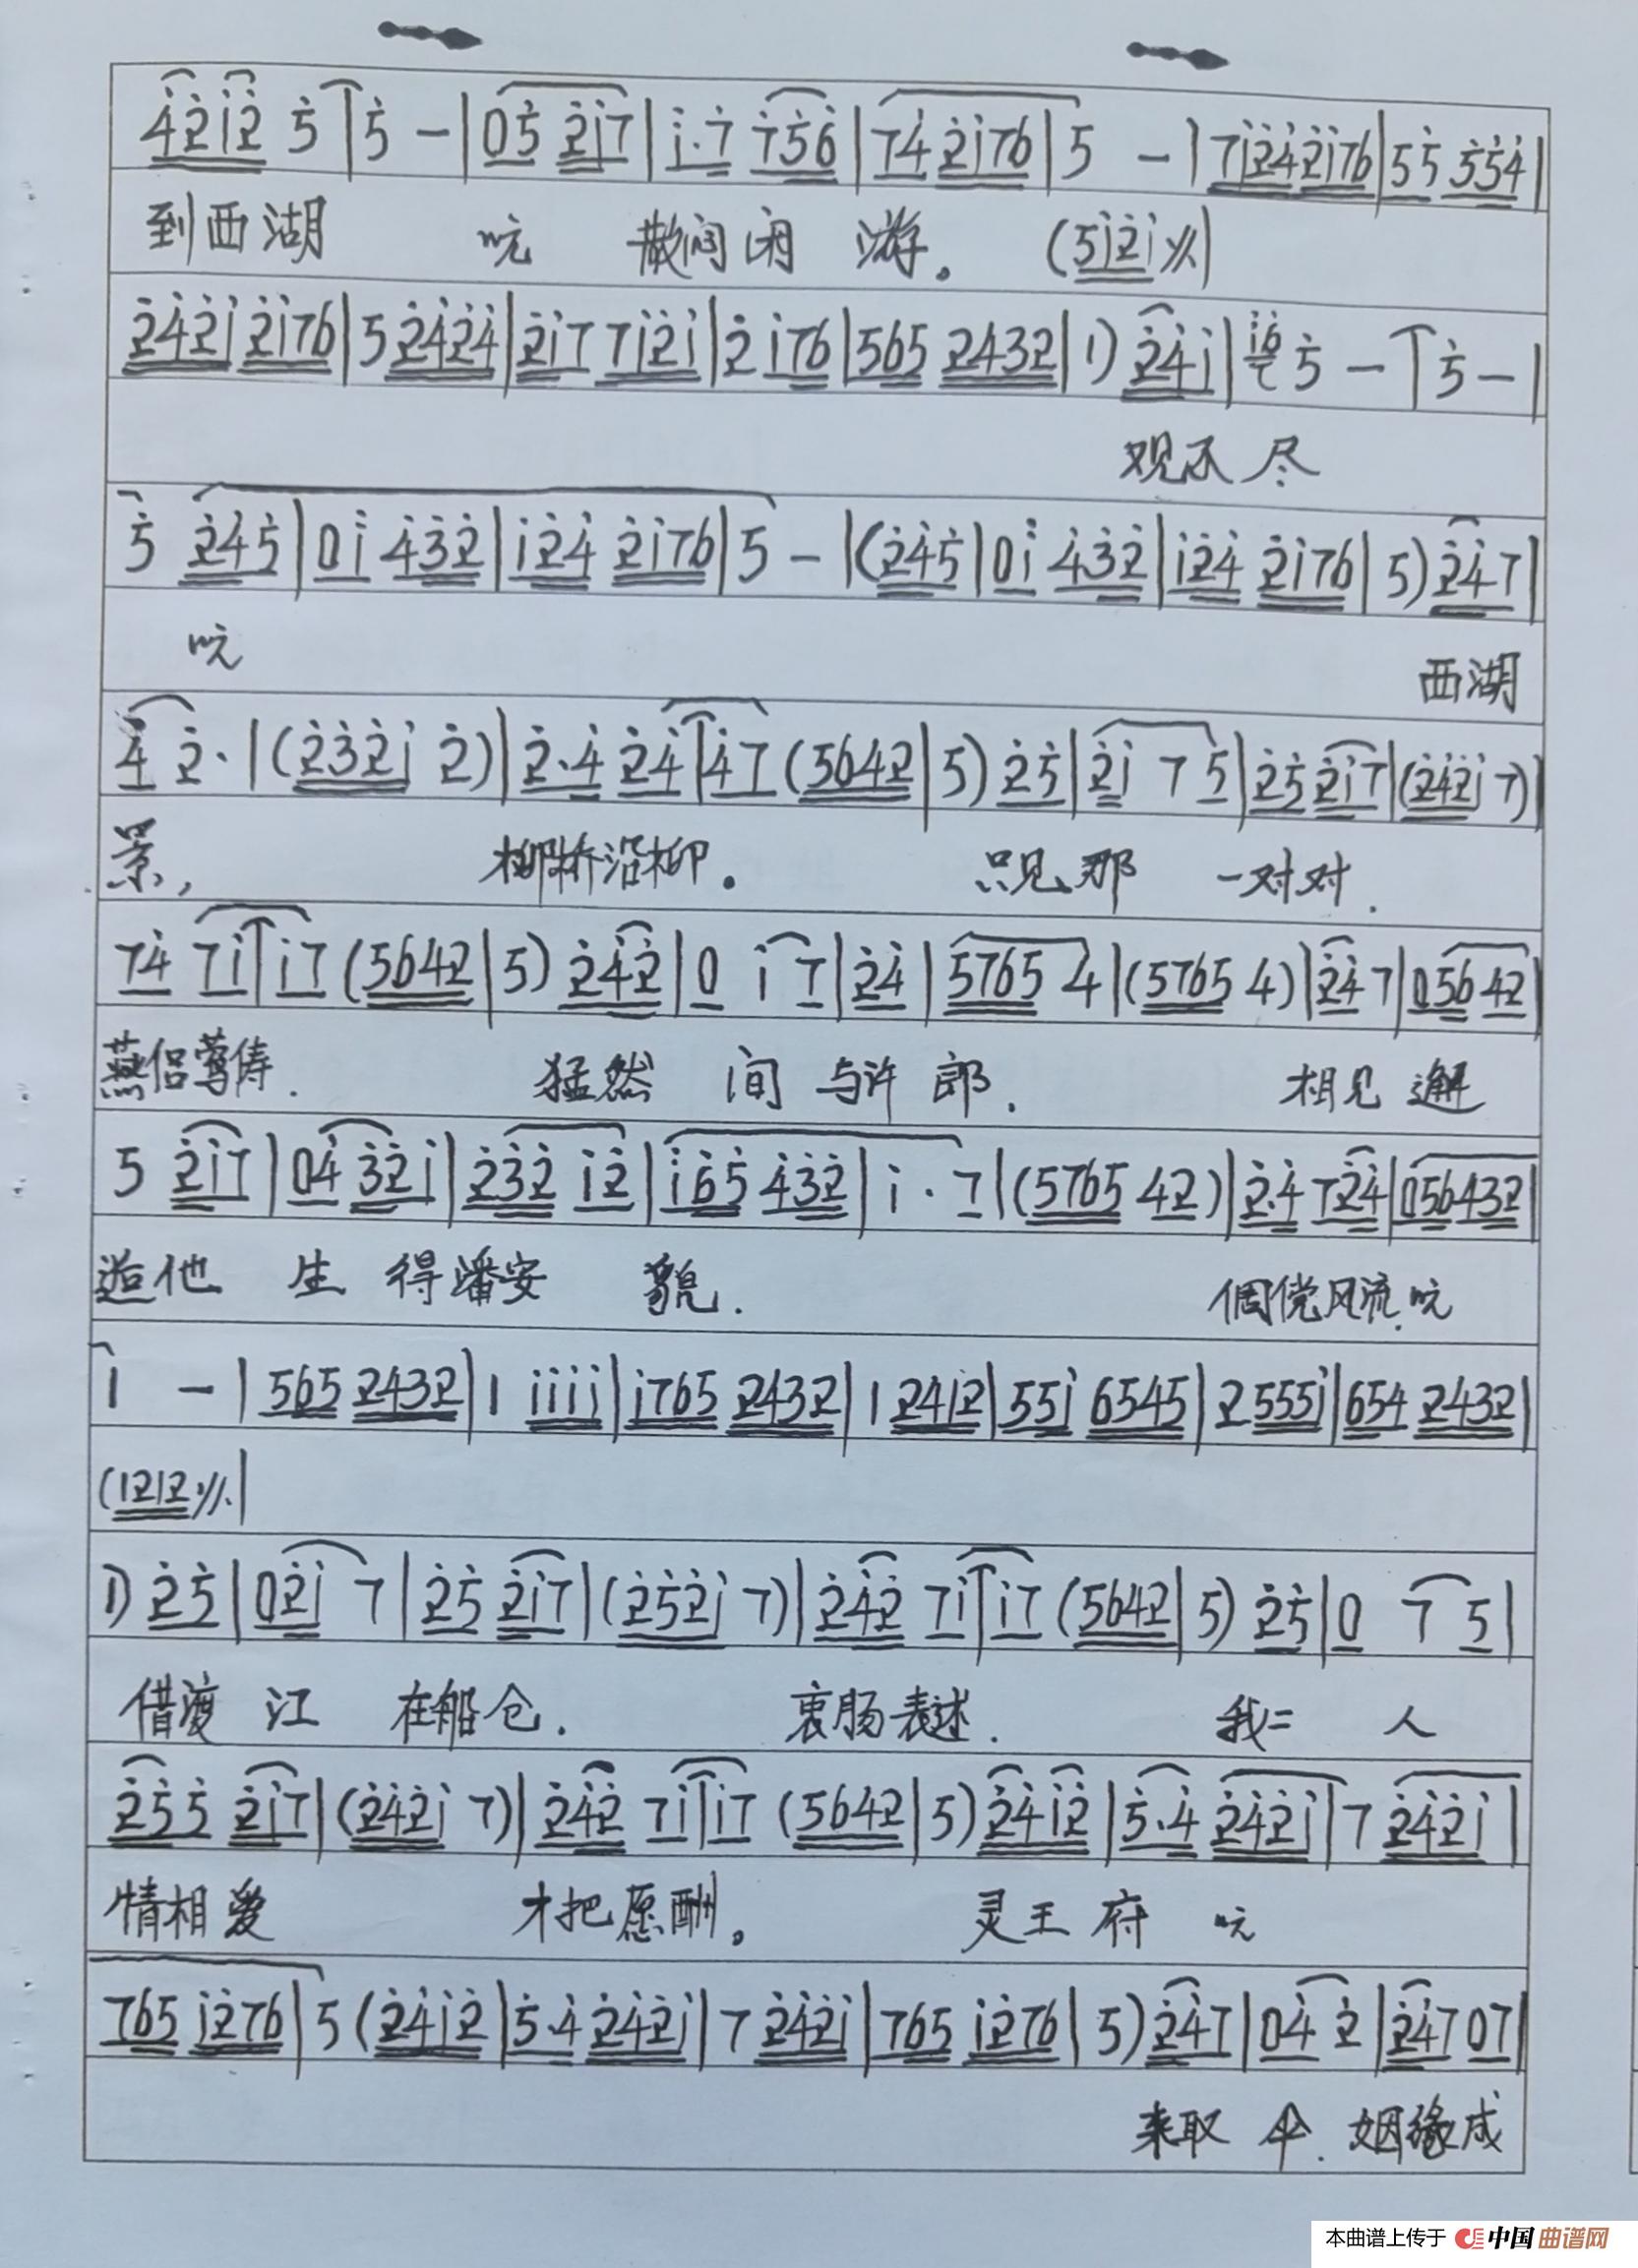 4̇2̇1̇2̇ 5̇ | 5̇ - | 05̇ 2̇1̇7 | 1̇·7̇ 7̇5̇6̇ | 74̇ 2̇1̇76 | 5 - | 71̇2̇4̇2̇1̇76 | 55̇ 5̇5̇4̇ |
到西湖 吭 散闷闲 游。 (51̇2̇1̇
2̇4̇2̇1̇ 2̇1̇76 | 5 2̇4̇2̇4̇ | 2̇1̇7 71̇2̇1̇ | 2̇ 1̇76 | 565 2432 | 1) 2̇4̇1̇ | 1̇6̇ 5̇ - | 5̇ - |
观不尽
5̇ 2̇4̇5̇ | 01̇ 4̇3̇2̇ | 1̇2̇4̇ 2̇1̇76 | 5 - | (2̇4̇5̇ | 01̇ 4̇3̇2̇ | 1̇2̇4̇ 2̇1̇76 | 5) 2̇4̇7 |
吭 西湖
4̇ 2̇· | (2̇3̇2̇1̇ 2̇) | 2̇·4̇ 2̇4̇ | 4̇7 (5642 | 5) 2̇5̇ | 2̇1̇ 7 5̇ | 2̇5̇ 2̇1̇7 | (2̇4̇2̇1̇ 7) |
景, 柳桥沿柳。 只见那 一对对.
74̇ 71̇ | 1̇7 (5642 | 5) 2̇4̇2̇ | 0 1̇ 7 | 2̇4̇ | 5765 4 | (5765 4) | 2̇4̇ 7 | 056 42 |
燕侣莺俦. 猛然 间 与许 郎. 相见 邂
5 2̇1̇7 | 04̇ 3̇2̇1̇ | 2̇3̇2̇ 1̇2̇ | 1̇6̇5̇ 4̇3̇2̇ | 1̇·7 | (5765 42) | 2̇·4̇ 72̇4̇ | 056432 |
逅他 生 得潘安 貌. 倜傥风流.吭
1 - | 565 2432 | 1 1̇1̇1̇1̇ | 1̇765 2432 | 1 2412 | 551̇ 6545 | 2 5551̇ | 654 2432 |
(1212
1) 2̇5̇ | 02̇1̇ 7 | 2̇5̇ 2̇1̇7 | (2̇5̇2̇1̇ 7) | 2̇4̇2̇ 71̇ | 1̇7 (5642 | 5) 2̇5̇ | 0 7 5 |
借渡 江 在船仓. 衷肠表述. 我二 人
2̇5̇5̇ 2̇1̇7 | (2̇4̇2̇1̇ 7) | 2̇4̇2̇ 71̇ | 1̇7 (5642 | 5) 2̇4̇1̇2̇ | 5̇·4̇ 2̇4̇2̇1̇ | 7 2̇4̇2̇1̇ |
情相爱 才把愿酬。 灵王府 吭
765 1̇2̇76 | 5 (2̇4̇1̇2̇ | 5̇·4̇ 2̇4̇2̇1̇ | 7 2̇4̇2̇1̇ | 765 1̇2̇76 | 5) 2̇4̇7 | 04̇ 2̇ | 2̇4̇7 07 |
来取 伞. 姻缘成
本曲谱上传于 中国曲谱网